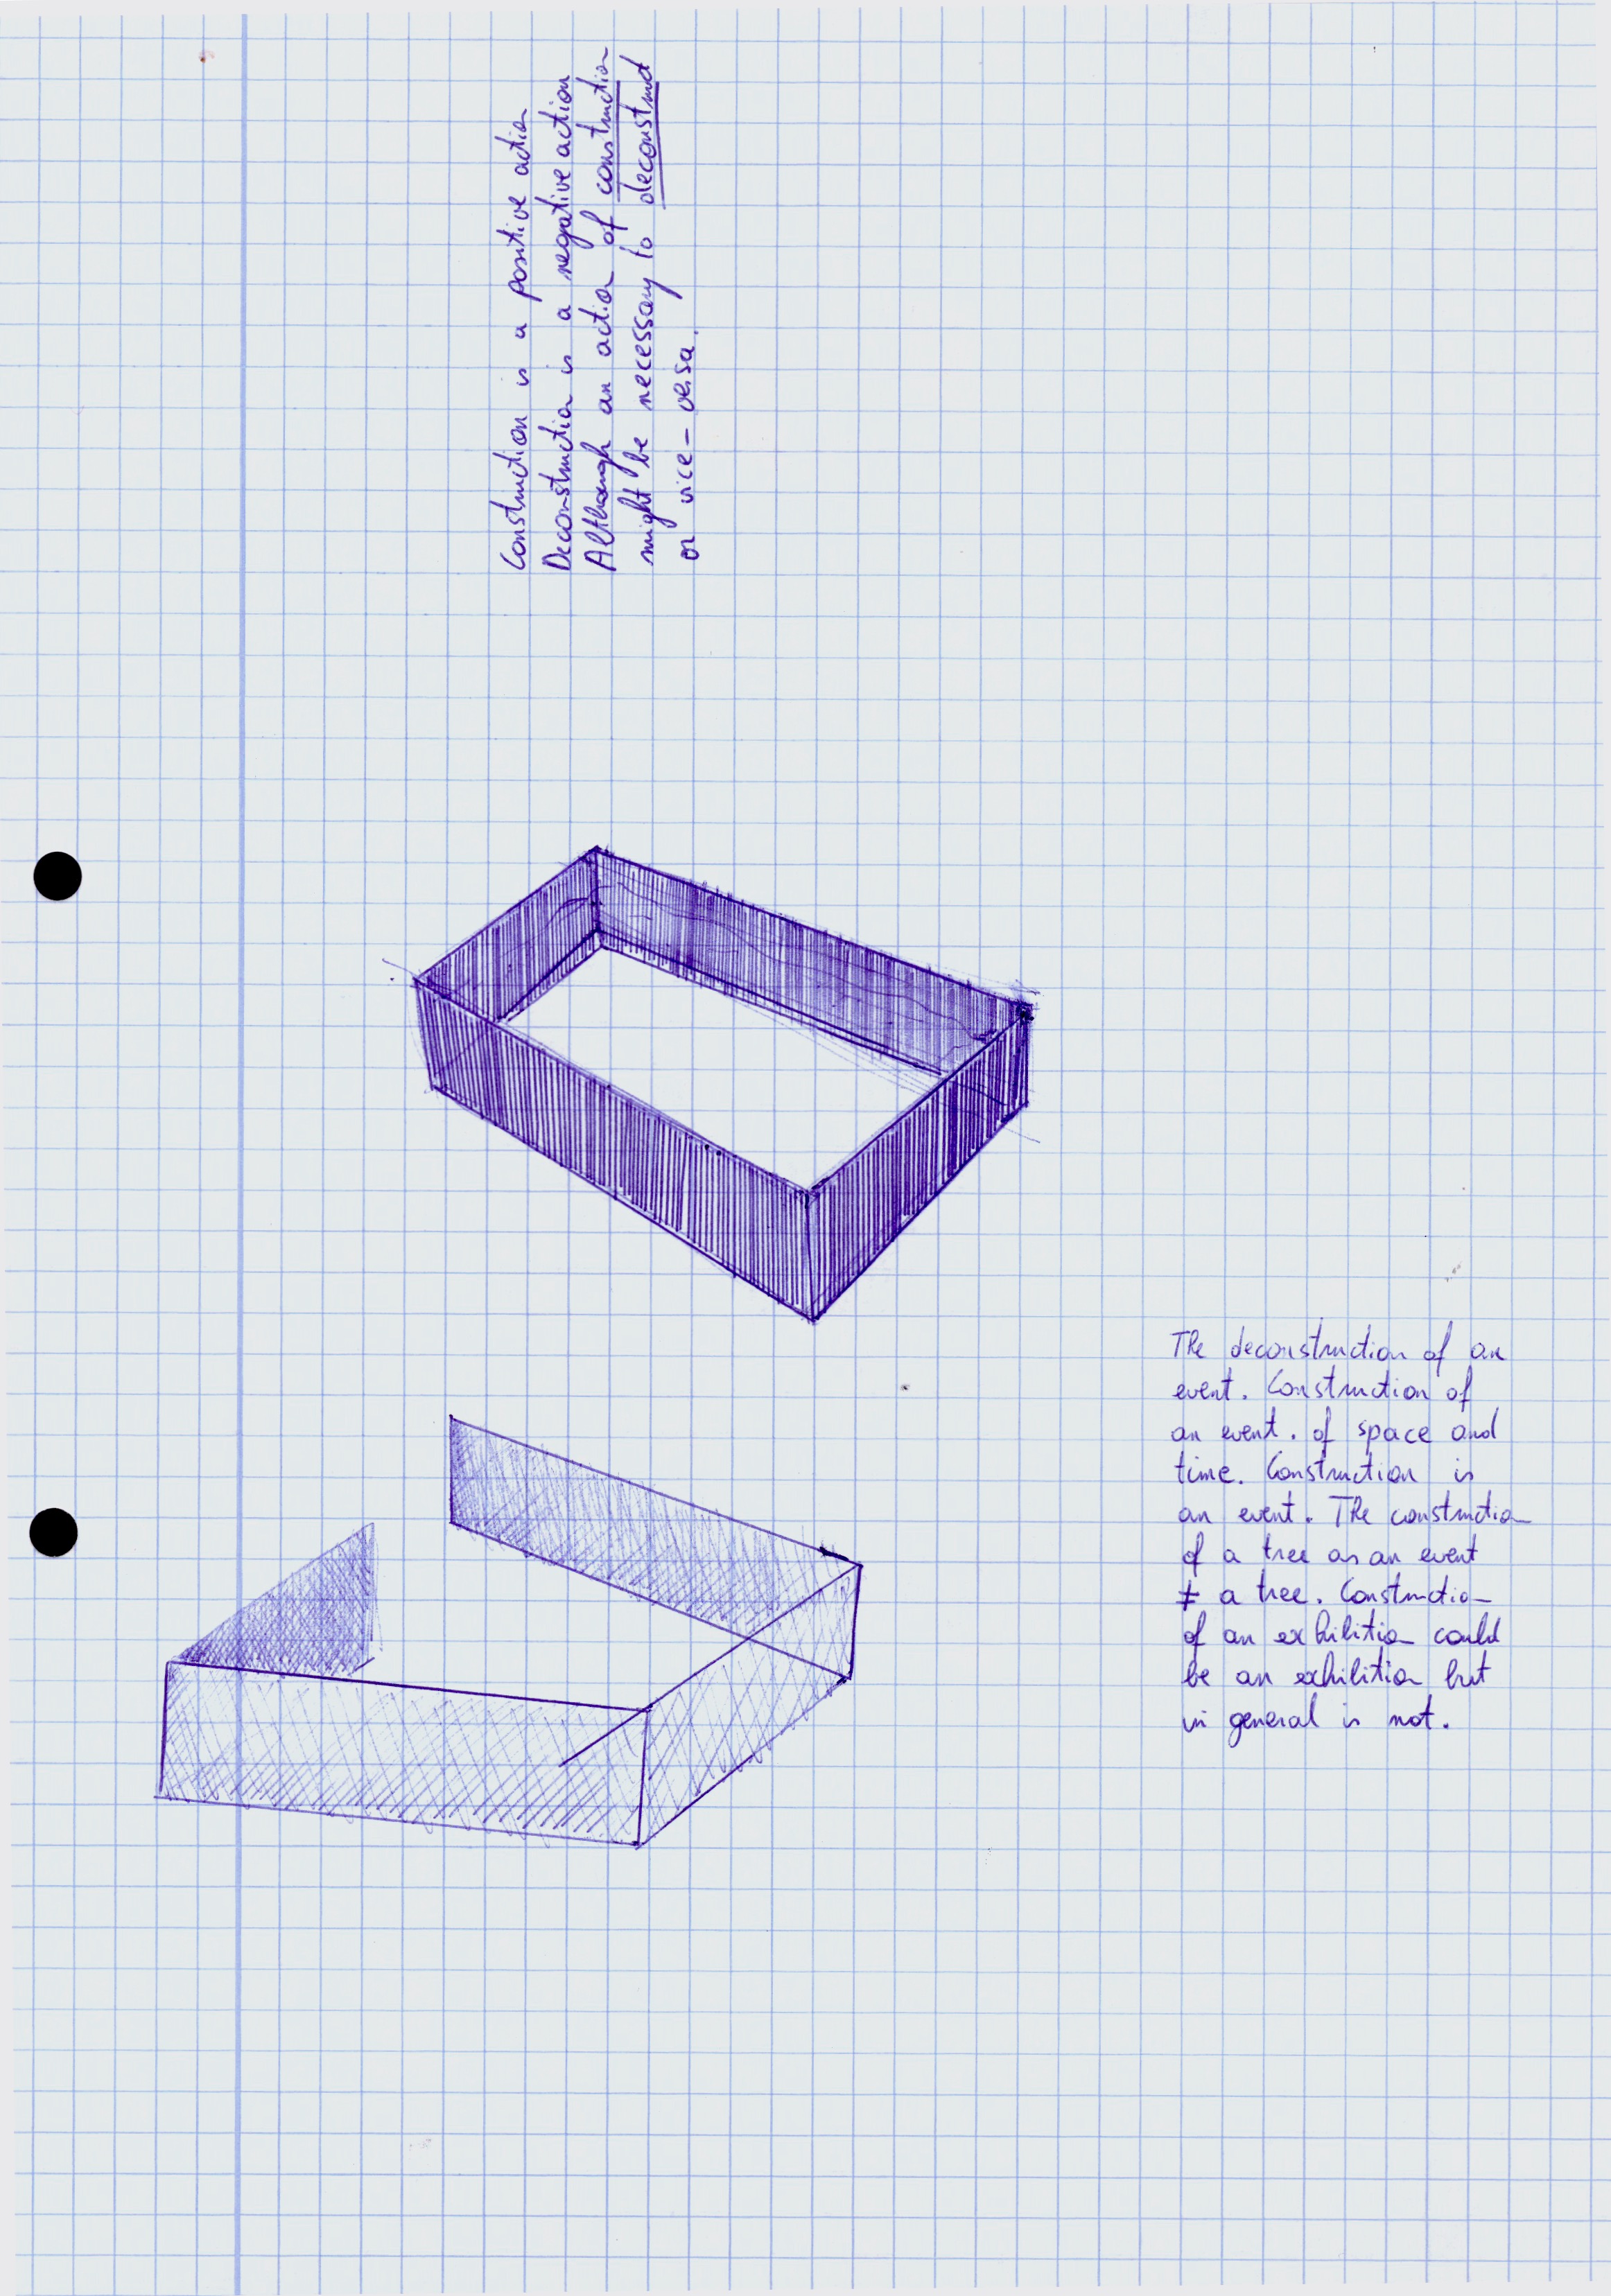 Construction is a positive action
Deconstruction is a negative action
Although an action of construction
might be necessary to deconstruct
or vice-versa.
The deconstruction of an
event. Construction of
an event. of space and
time. Construction is
an event. The construction
of a tree as an event
≠ a tree. Construction
of an exhibition could
be an exhibition but
in general is not.